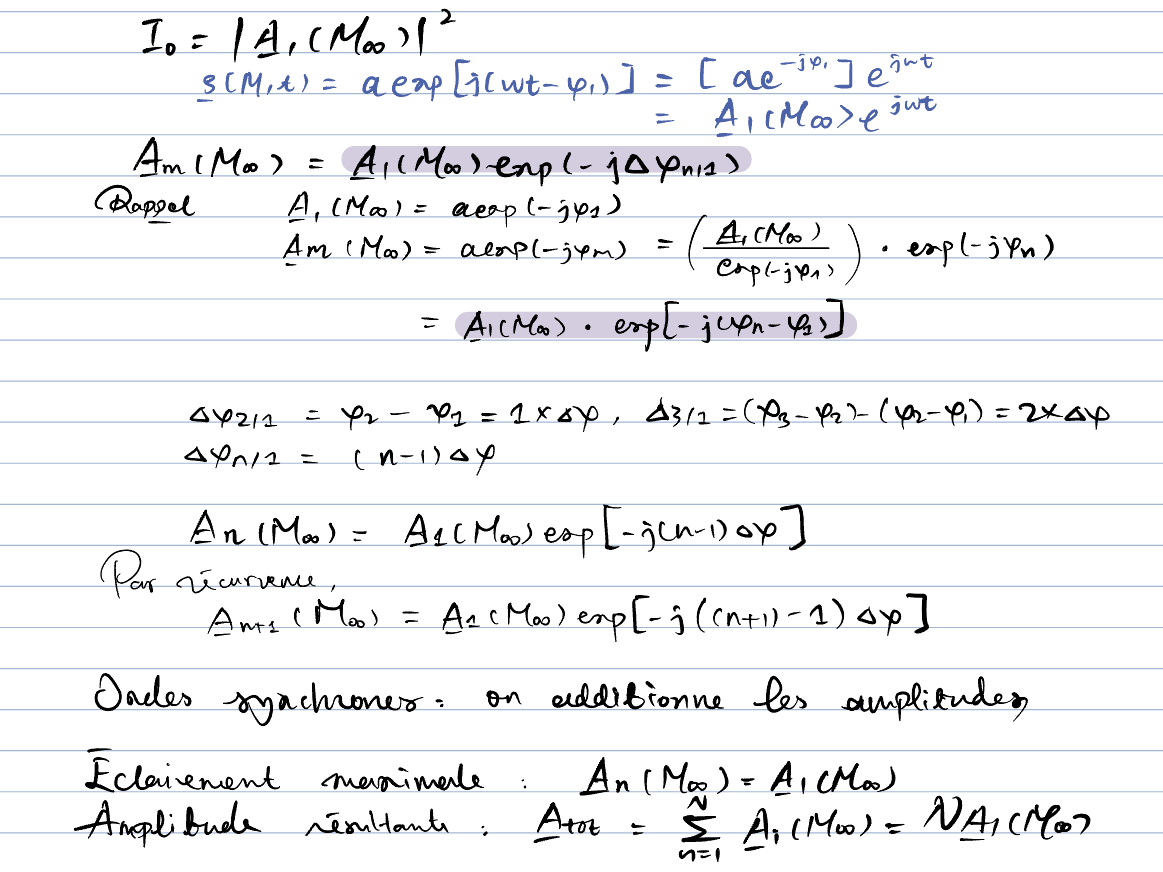 I₀ = |A₁(M∞)|²
s(M,t) = a exp[j(ωt-φ₁)] = [ae^{-jφ₁}] e^{jωt}
= A₁(M∞)e^{jωt}
Am(M∞) = A₁(M∞) exp(-jΔφn/1)
Rappel A₁(M∞) = a exp(-jφ1)
Am(M∞) = a exp(-jφm) = (A₁(M∞) / exp(-jφ1)) · exp(-jφn)
= A₁(M∞) · exp[-j(φn-φ1)]
Δφ2/1 = φ2 - φ1 = 1×Δφ, Δ3/1 = (φ3-φ2)-(φ2-φ1) = 2×Δφ
Δφn/1 = (n-1)Δφ
An(M∞) = A1(M∞) exp[-j(n-1)Δφ]
Par récurrence,
An+1(M∞) = A1(M∞) exp[-j((n+1)-1)Δφ]
Ondes synchrones : on additionne les amplitudes
Eclairement maximale : An(M∞) = A₁(M∞)
Amplitude résultante : Atot = Σ_{n=1}^{N} Ai(M∞) = NA₁(M∞)